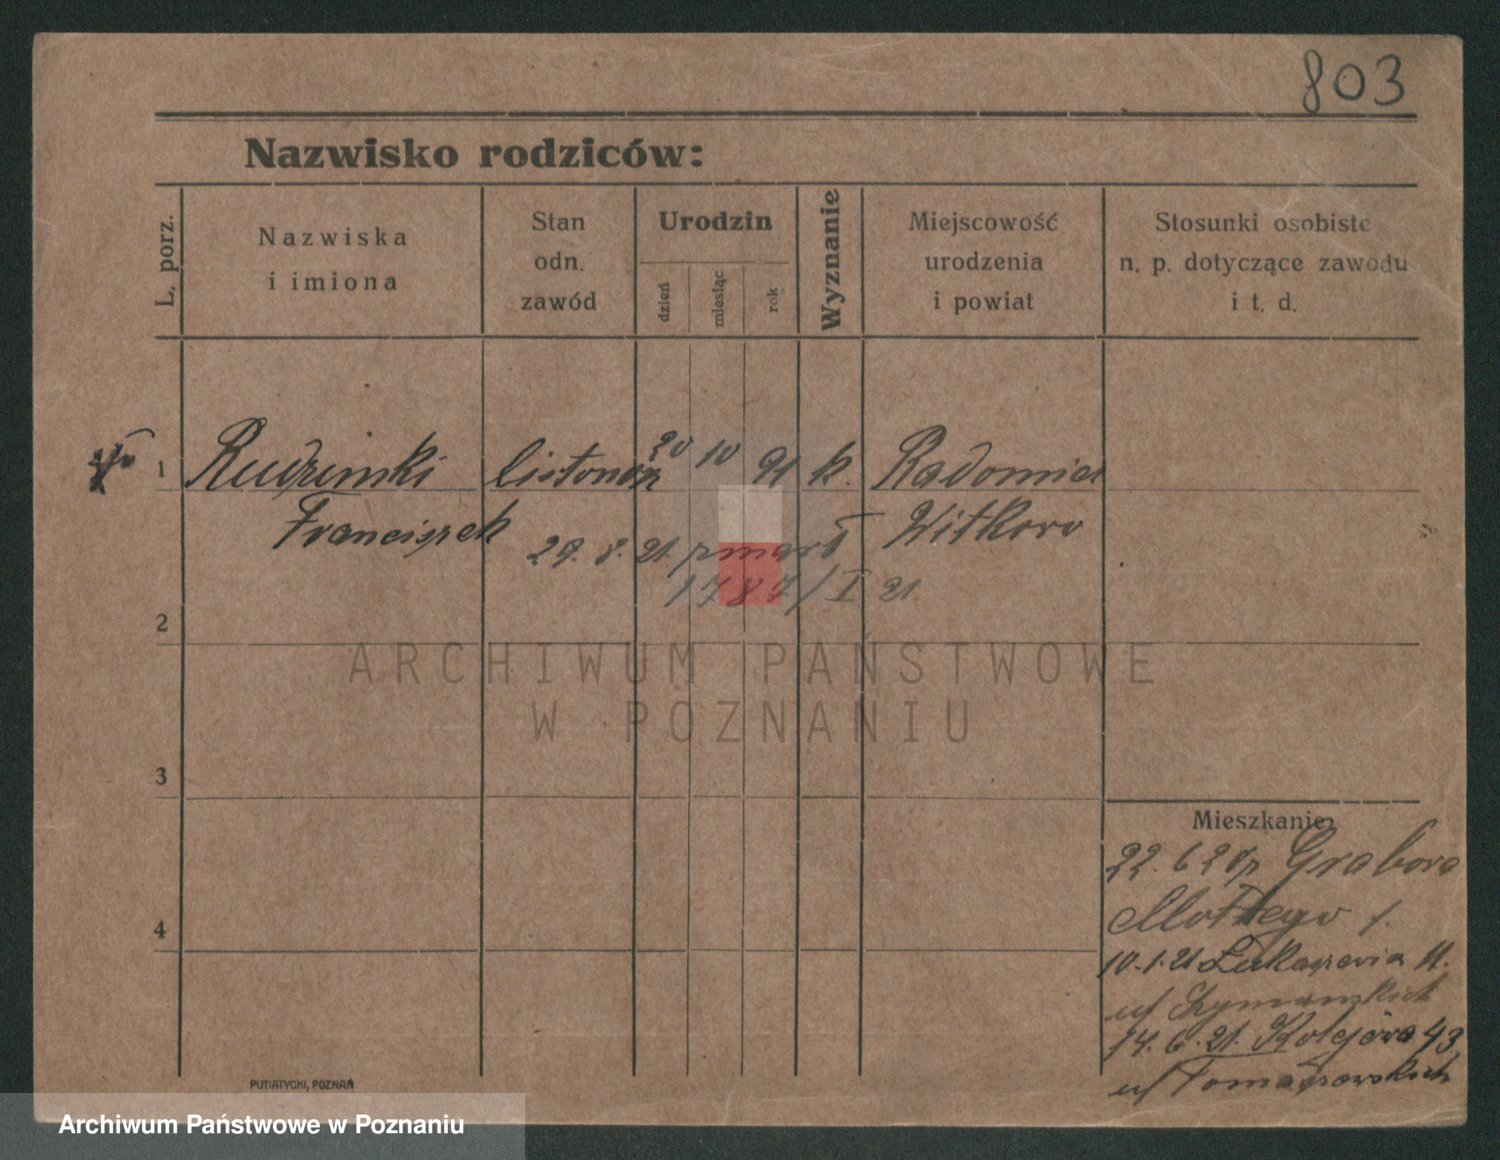 803
Nazwisko rodziców:
L. porz.
Nazwiska
i imiona
Stan
odn.
zawód
Urodzin
dzień
miesiąc
rok
Wyznanie
Miejscowość
urodzenia
i powiat
Stosunki osobiste
n. p. dotyczące zawodu
i t. d.
1 Rudzinski listonosz 20 10 91 k. Radomice
Franciszek Witkowo
29. 8. 21. zmarł
1787/I 21
2
ARCHIWUM PAŃSTWOWE
W POZNANIU
3
4
Mieszkanie:
22. 6. 20 Grabowo
1.
10.1.21 Łukaszewia 11.
u/ Szymanskich
14. 6. 21. Kolejowa 43
u/ Tomaszewskich
PUTIATYCKI, POZNAŃ
Archiwum Państwowe w Poznaniu